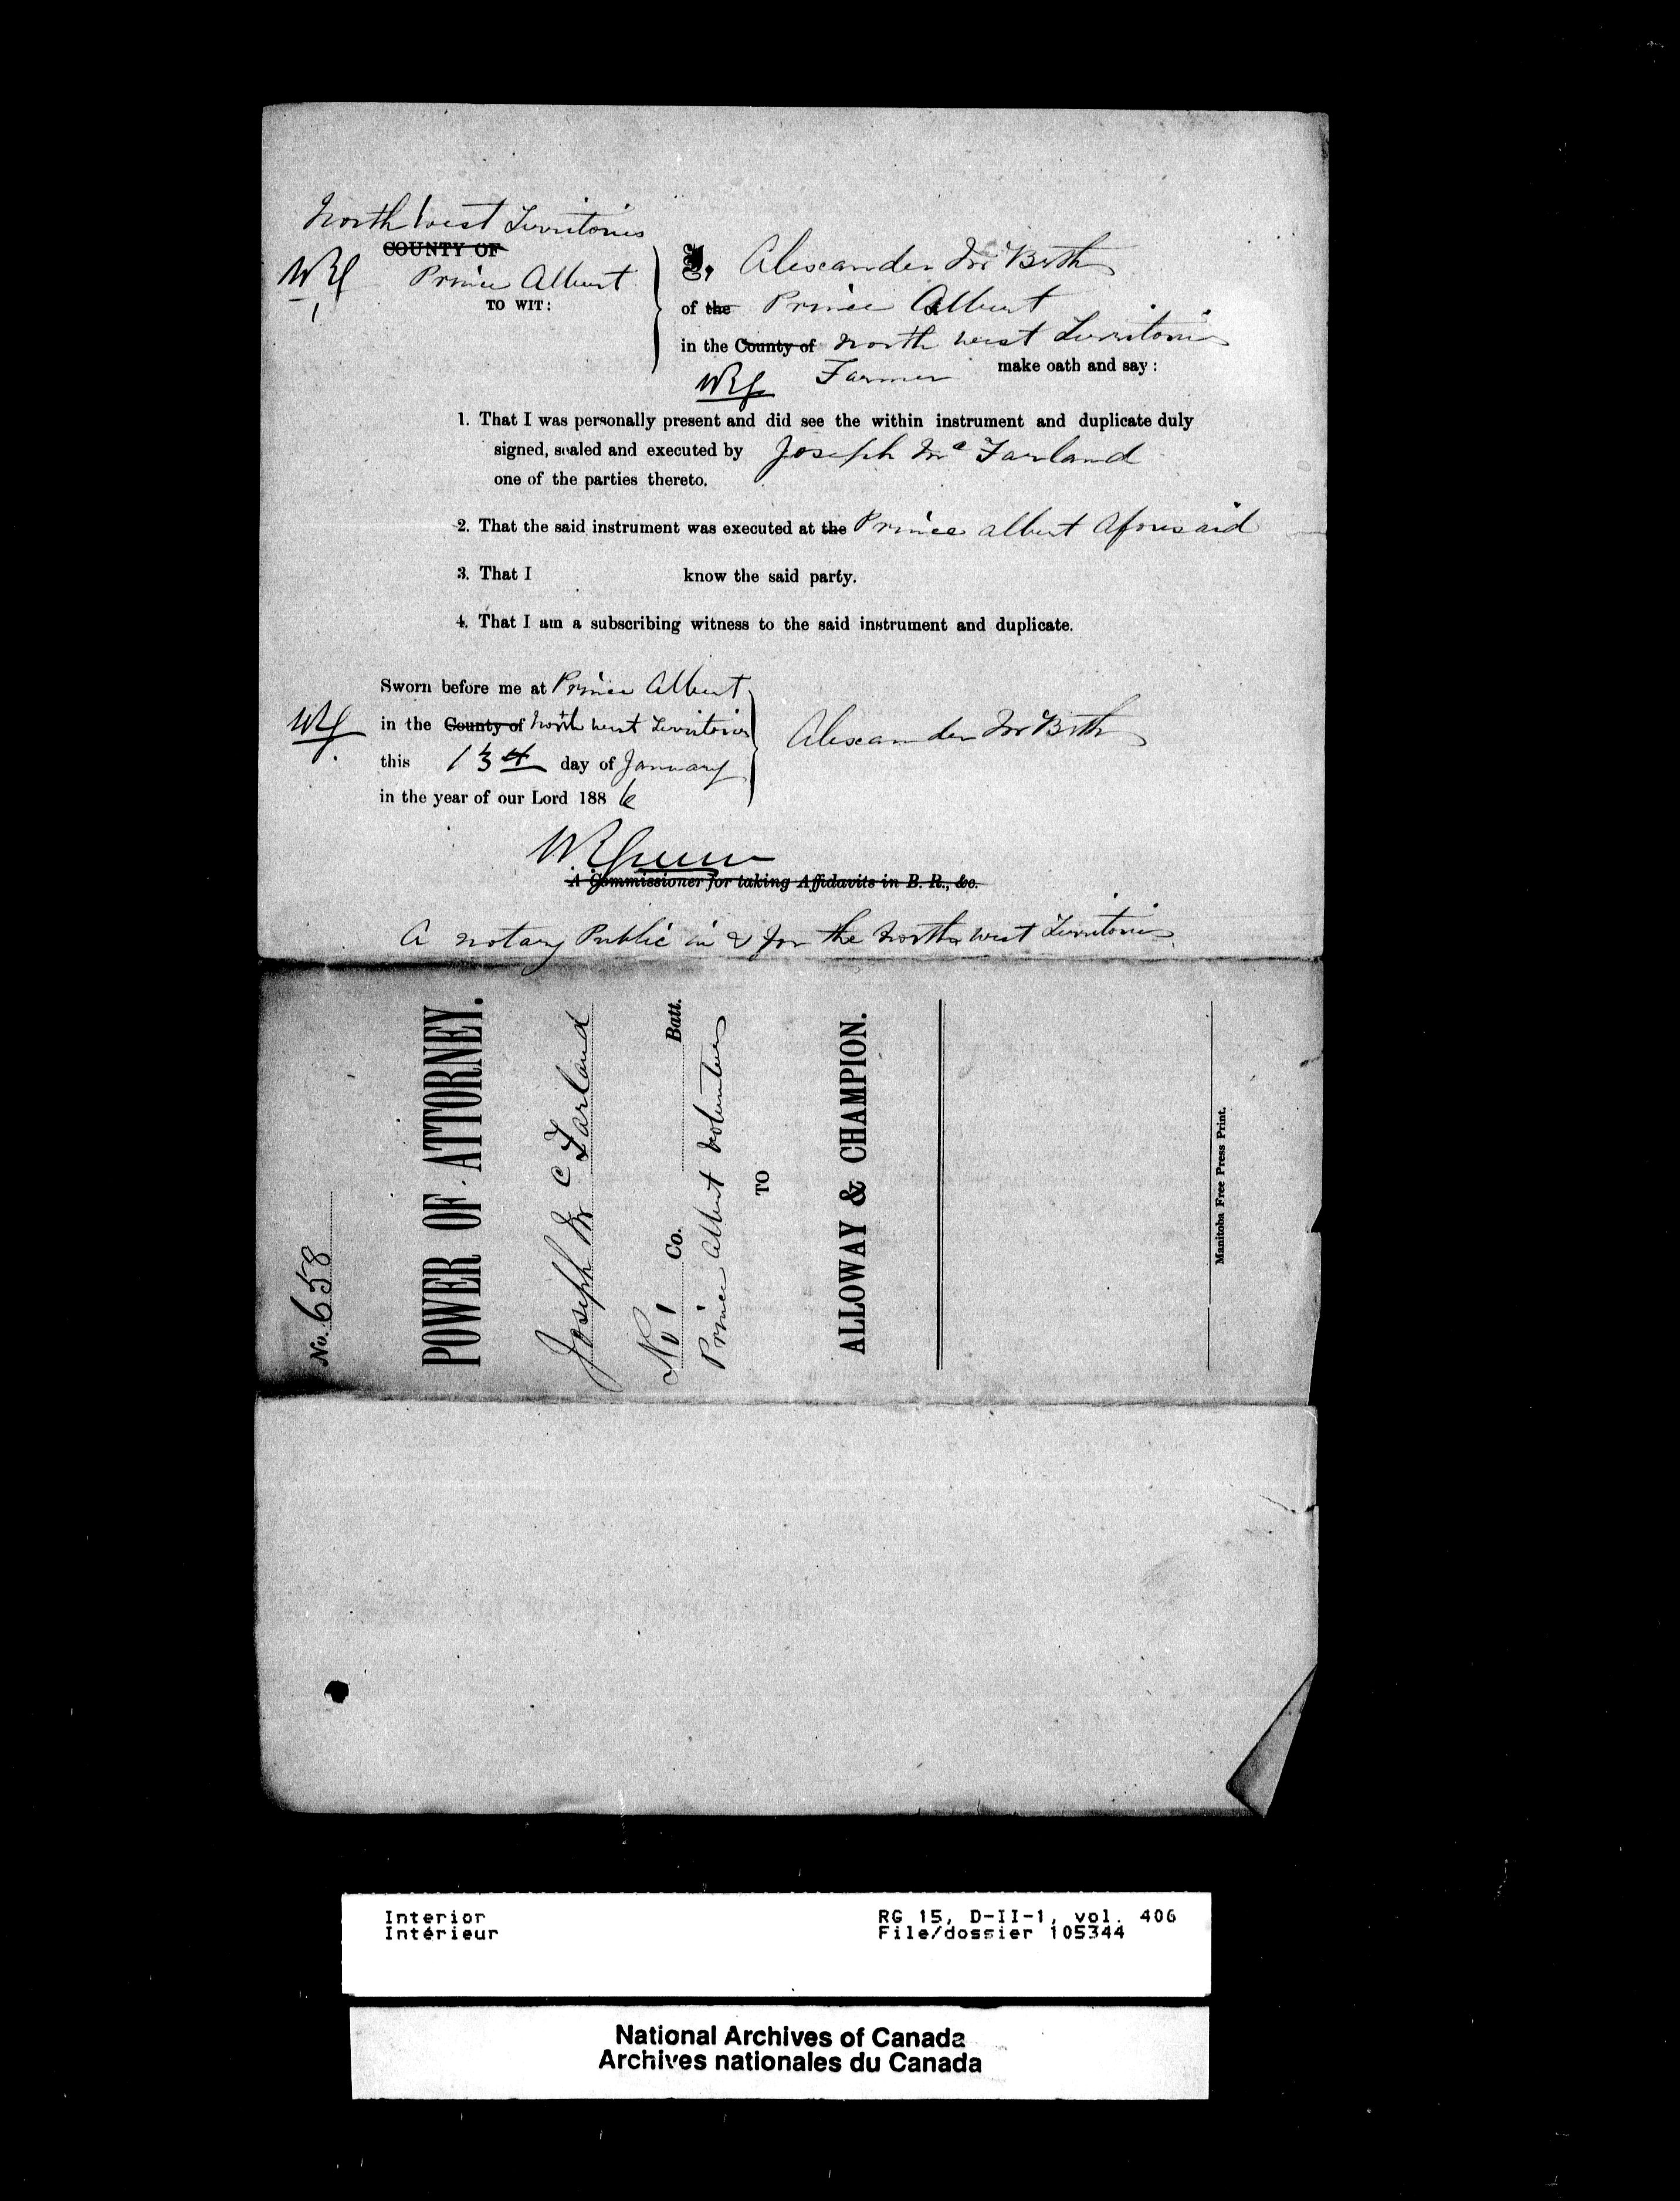 North West Territories
COUNTY OF
WRG Prince Albert
TO WIT:
I, Alexander McBeth
of the Prince Albert
in the County of North West Territories
WRG Farmer make oath and say:
1. That I was personally present and did see the within instrument and duplicate duly
signed, sealed and executed by Joseph McFarland
one of the parties thereto.
2. That the said instrument was executed at the Prince albert Aforesaid
3. That I know the said party.
4. That I am a subscribing witness to the said instrument and duplicate.
Sworn before me at Prince Albert
WRG in the County of North West Territories
this 13th day of January
in the year of our Lord 1886
Alexander McBeth
A Commissioner for taking Affidavits in B. R., &c.
A notary Public in & for the North West Territories
No. 658
POWER OF ATTORNEY.
Joseph McFarland
No 1 Co. Batt.
Prince Albert Volunteers
TO
ALLOWAY & CHAMPION.
Manitoba Free Press Print.
Interior RG 15, D-II-1, vol. 406
Intérieur File/dossier 105344
National Archives of Canada
Archives nationales du Canada